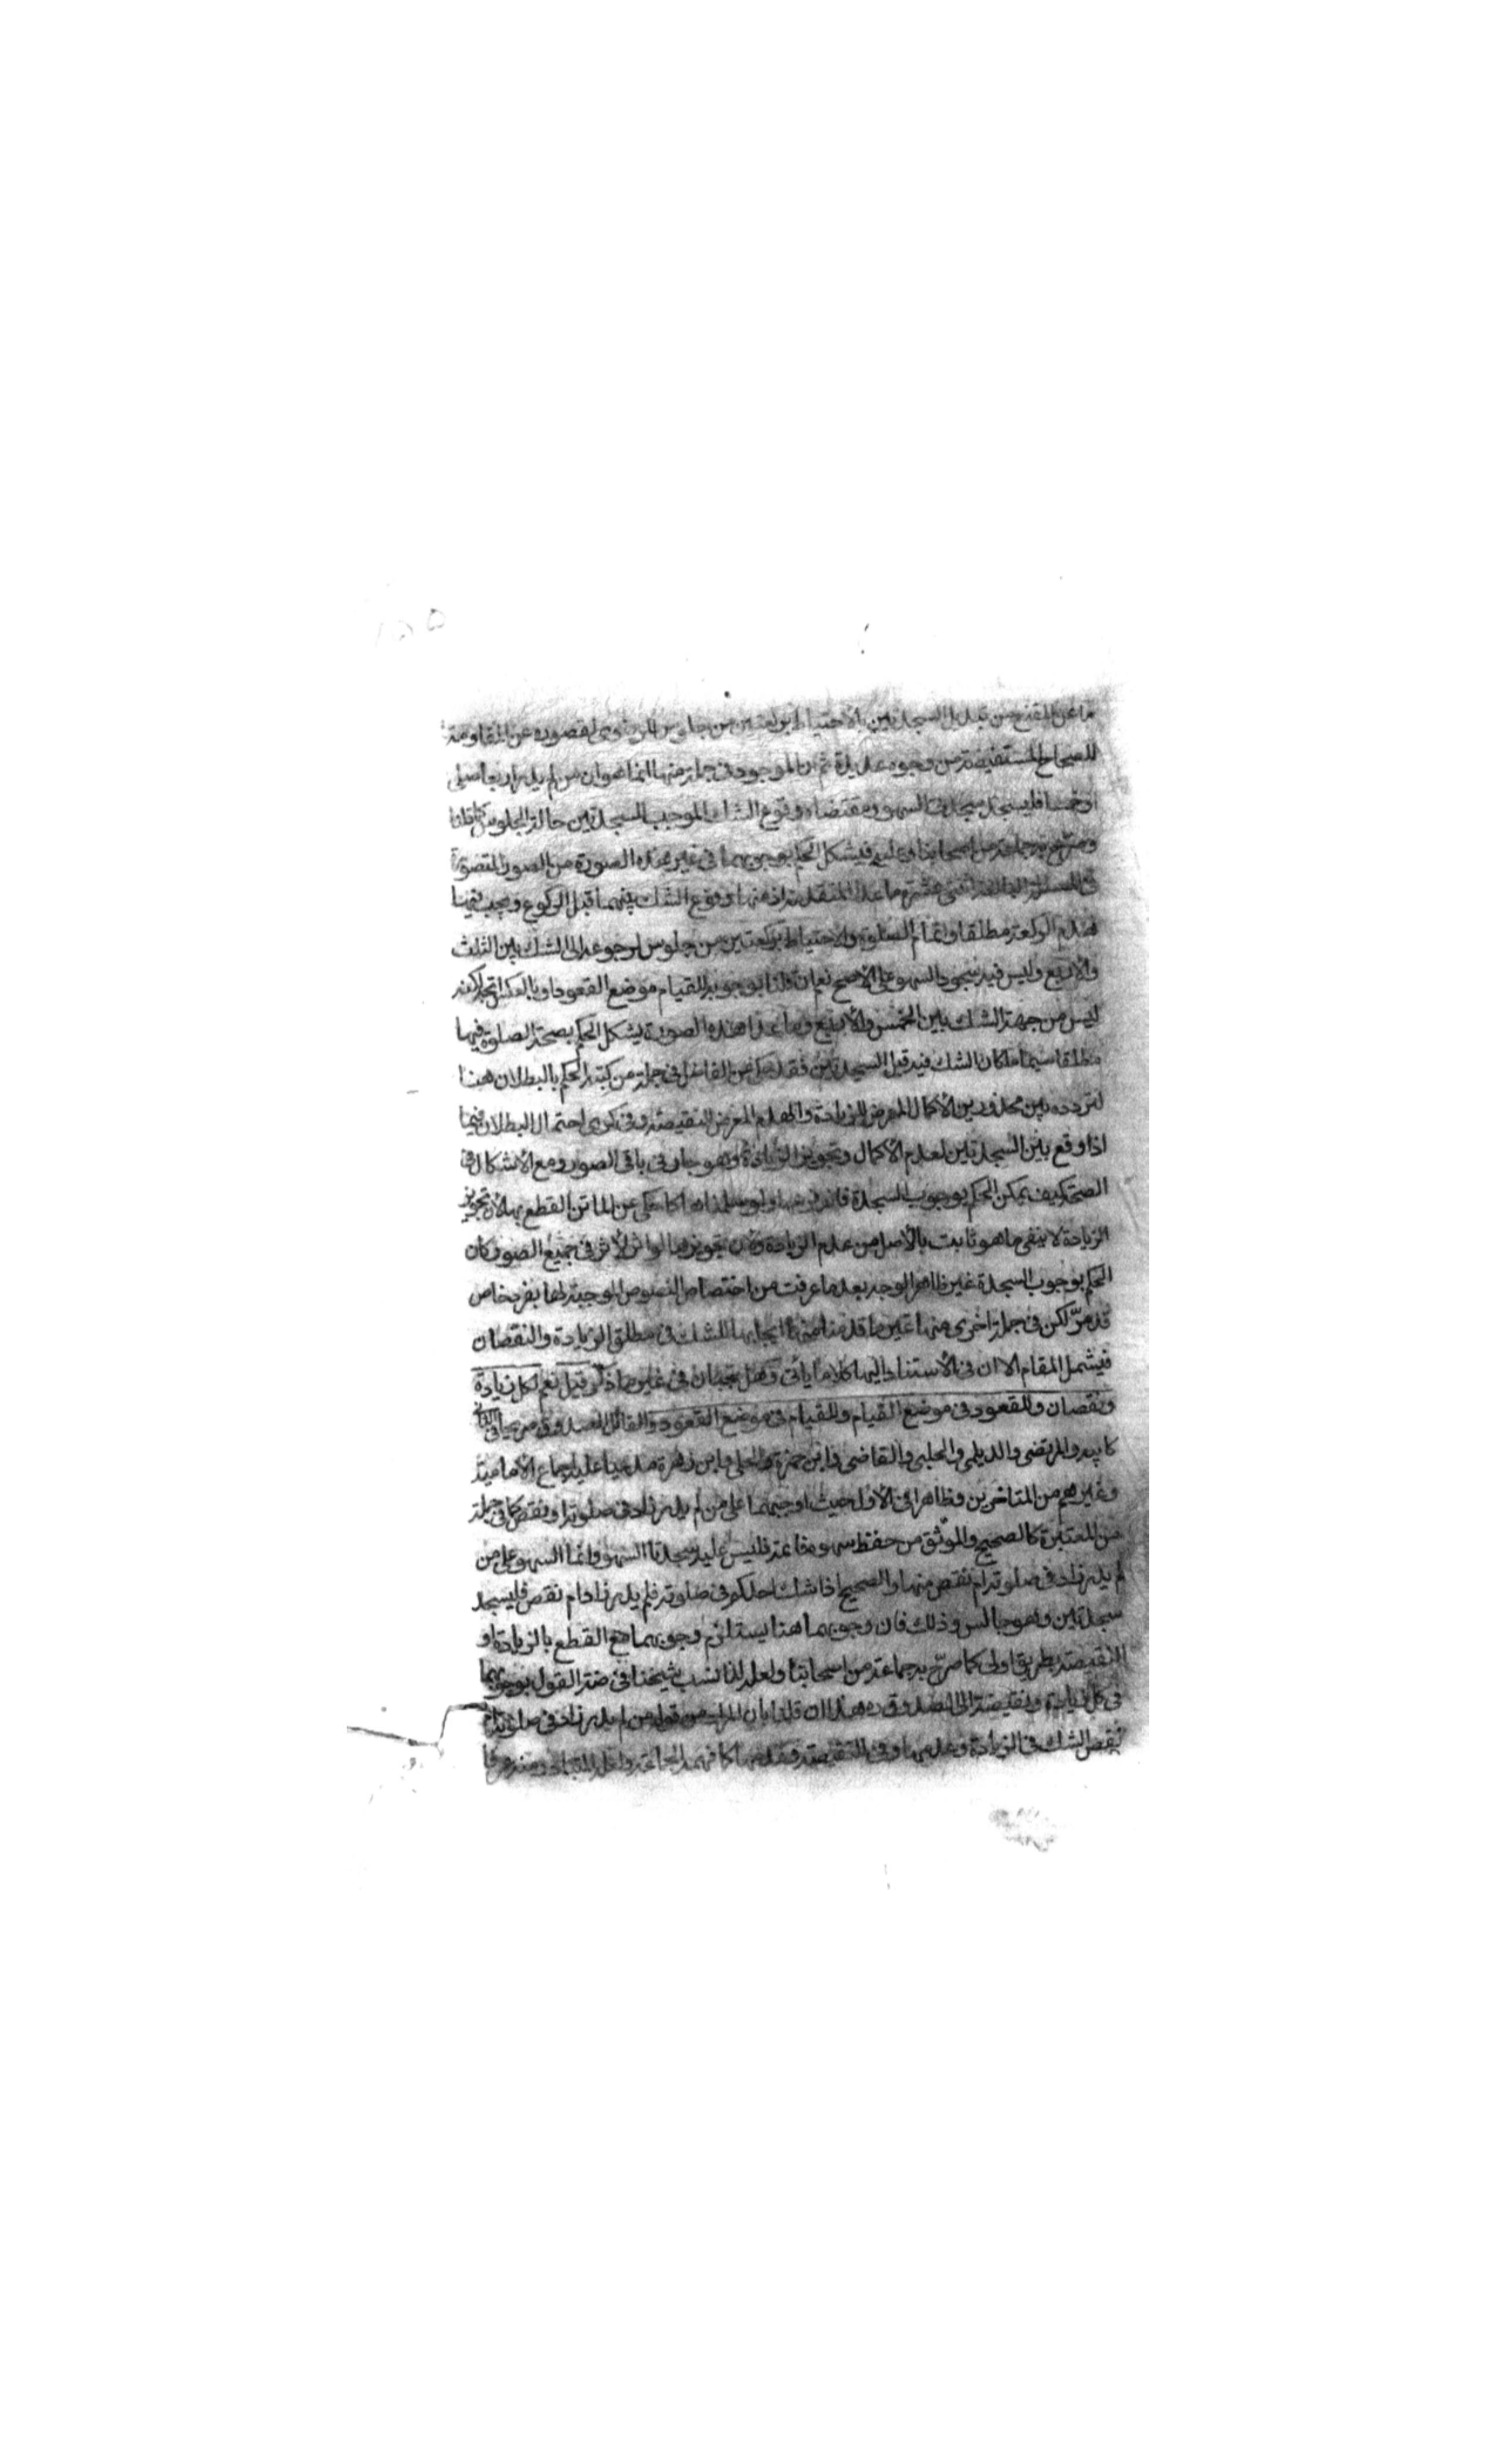 ما عن المقنع من تبديل السجدتين بالاحتياط بركعتين من جلوس للرضوى لقصوره عن المقاومة
للصحاح المستفيضة من وجوه عديدة ثم ان الموجود فى جملة منها انما هو ان من لم يدر اربعا صلى
او خمسا فليسجد سجدتى السهو ومقتضاه وقوع الشك الموجب للسجدتين حالة الجلوس كما قلنا
وصرح به جماعة من اصحابنا وعليه فيشكل الحكم بوجوبهما فى غير هذه الصورة من الصور المتصورة
فى المسئلة البالغة اثنى عشرة ما عدا المتقدمة اذ منها وقوع الشك بينهما قبل الركوع ويجب فيها
هدم الركعة مطلقا واتمام الصلوة والاحتياط بركعتين من جلوس لرجوعه الى الشك بين الثلث
والاربع وليس فيه سجود السهو على الاصح نعم ان قلنا بوجوبه للقيام موضع القعود او بالعكس اتجه لكنه
ليس من جهة الشك بين الخمس والاربع وما عدا هذه الصورة يشكل الحكم بصحة الصلوة فيها
مطلقا سيما ما كان الشك فيه قبل السجدتين فقد حكى عن الفاضل فى جملة من كتبه الحكم بالبطلان هنا
لتردده بين محذورين الاكمال المعرض للزيادة والهدم المعرض للنقيصة وفى كرى احتمال البطلان فيها
اذا وقع بين السجدتين لعدم الاكمال وتجويز الزيادة وهو جار فى باقى الصور ومع الاشكال فى
الصحة كيف يمكن الحكم بوجوب السجدة فانه فرعها ولو سلمناها كما حكى عن الماتن القطع بها لان تجويز
الزيادة لا ينفى ما هو ثابت بالاصل من عدم الزيادة ولان تجويزها لو اثر لاثر فى جميع الصور كان
الحكم بوجوب السجدة غير ظاهر الوجه بعد ما عرفت من اختصاص النصوص الموجبة لها بفرد خاص
قد مرّ لكن فى جملة اخرى منها غير ما قدمنا منها ايجابها للشك فى مطلق الزيادة والنقصان
فيشمل المقام الا ان فى الاستناد اليها كلاما ياتى وهل تجبان فى غير ما ذكر قيل نعم لكل زيادة
ونقصان وللقعود فى موضع القيام وللقيام فى موضع القعود والقائل الصدوق
كابيه والمرتضى والديلمى والحلبى والقاضى وابن حمزة والحلى وابن زهرة مدعيا عليه اجماع الامامية
وغيرهم من المتاخرين وظاهرا فى الاول حيث اوجبهما على من لم يدر زاد فى صلوته او نقص كما فى جملة
من المعتبرة كالصحيح والموثق من حفظ سهوه فاتمه فليس عليه سجدتا السهو وانما السهو على من
لم يدر زاد فى صلوته ام نقص منها والصحيح اذا شك احدكم فى صلوته فلم يدر زاد ام نقص فليسجد
سجدتين وهو جالس وذلك فان وجوبهما هنا يستلزم وجوبهما مع القطع بالزيادة او
النقيصة بطريق اولى كما صرح به جماعة من اصحابنا ولعله لذا نسب شيخنا فى ضه القول بوجوبهما
فى كل زيادة ونقيصة الى الصدوق ره هذا ان قلنا بان المراد من قوله من لم يدر زاد فى صلوته ام
نقص الشك فى الزيادة وعدمها وفى النقيصة وعدمها كما فهمه الجماعة ولعله المتبادر منه عرفا